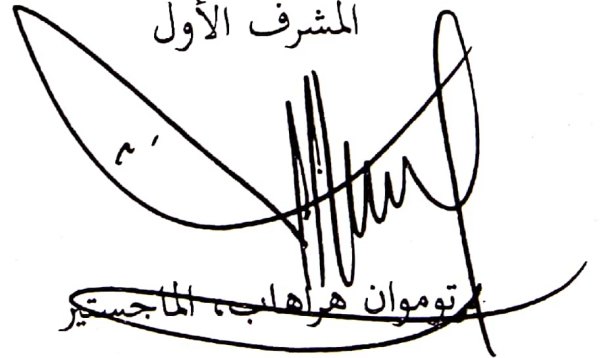 المشرف الأول
توموان هراهاب، الماجستير